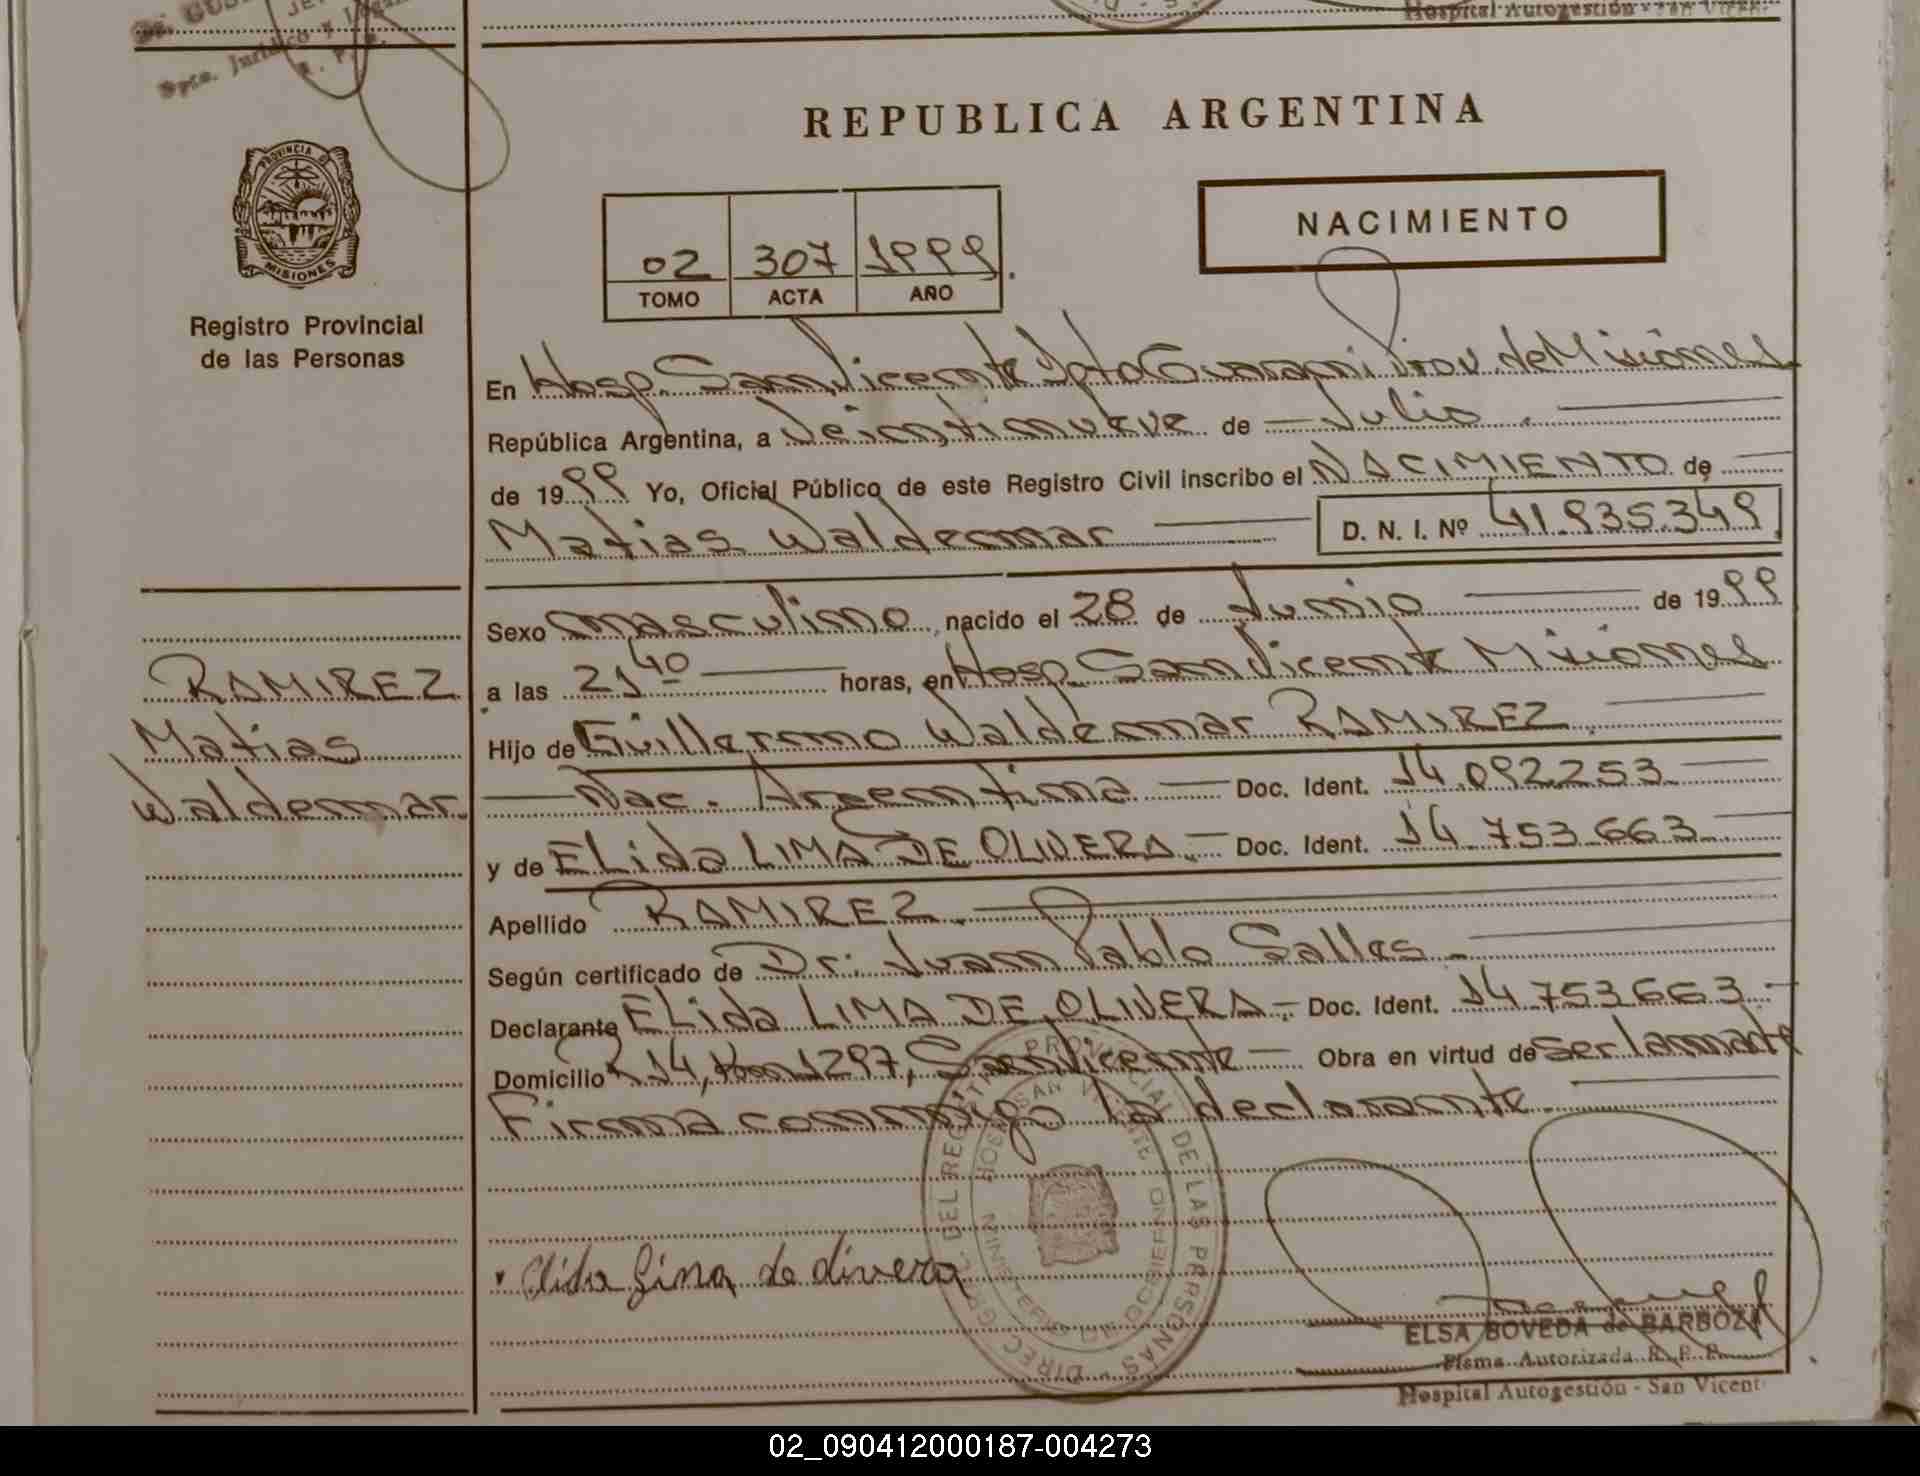 Dr. GUS
JE
Dpto. Jurídico y Legal
R. P. P.
Hospital Autogestión - San Vicente
PROVINCIA DE
MISIONES
Registro Provincial
de las Personas
REPUBLICA ARGENTINA
NACIMIENTO
02 307 1999.
TOMO ACTA AÑO
En Hosp. San Vicente Dpto Guarani Prov. de Misiones
República Argentina, a Veintinueve de Julio.
de 1999 Yo, Oficial Público de este Registro Civil inscribo el NACIMIENTO de
Matias Waldemar D. N. I. Nº 41.935.349
Sexo masculino nacido el 28 de Junio de 1999
a las 21 40 horas, en Hosp. San Vicente Misiones
Hijo de Guillermo Waldemar RAMIREZ
Nac. Argentina Doc. Ident. 14.092253
y de ELida LIMA DE OLIVERA Doc. Ident. 14.753.663
Apellido RAMIREZ.
Según certificado de Dr. Juan Pablo Salles
Declarante ELida LIMA DE OLIVERA Doc. Ident. 14 753663
Domicilio R 14, Km 1297, San Vicente Obra en virtud de Ser la madre
Firma conmigo la declarante.
RAMIREZ
Matias
Waldemar.
Elida Lima de olivera
DIREC. GRAL. DEL REGISTRO PROVINCIAL DE LAS PERSONAS
HOSP. SAN VICENTE
MINISTERIO DE GOBIERNO
ELSA BOVEDA de BARBOZA
Firma Autorizada R. P. P.
Hospital Autogestión - San Vicent
02_090412000187-004273